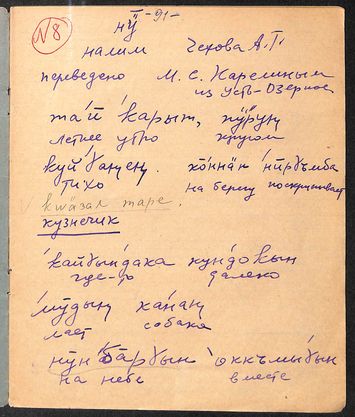 -91-
N8 нӱ̄
налим Чехова А.П.
переведено М. С. Карелиным
из Усть-Озерное
та'й 'карыт, пӱ̄руӈ
летнее утро кругом
куй'ɣаӈеӈ. хо́ннӓн 'нӣрɣъмба
тихо на берегу поскрипывает
кwӓзал таре.
кузнечик
'кайɣын'дака кун'докын
где-то далеко
'мӯдыӈ ка'наӈ
лает собака
нӯн 'ба̄рɣын 'оккъмыɣын
на небе вместе